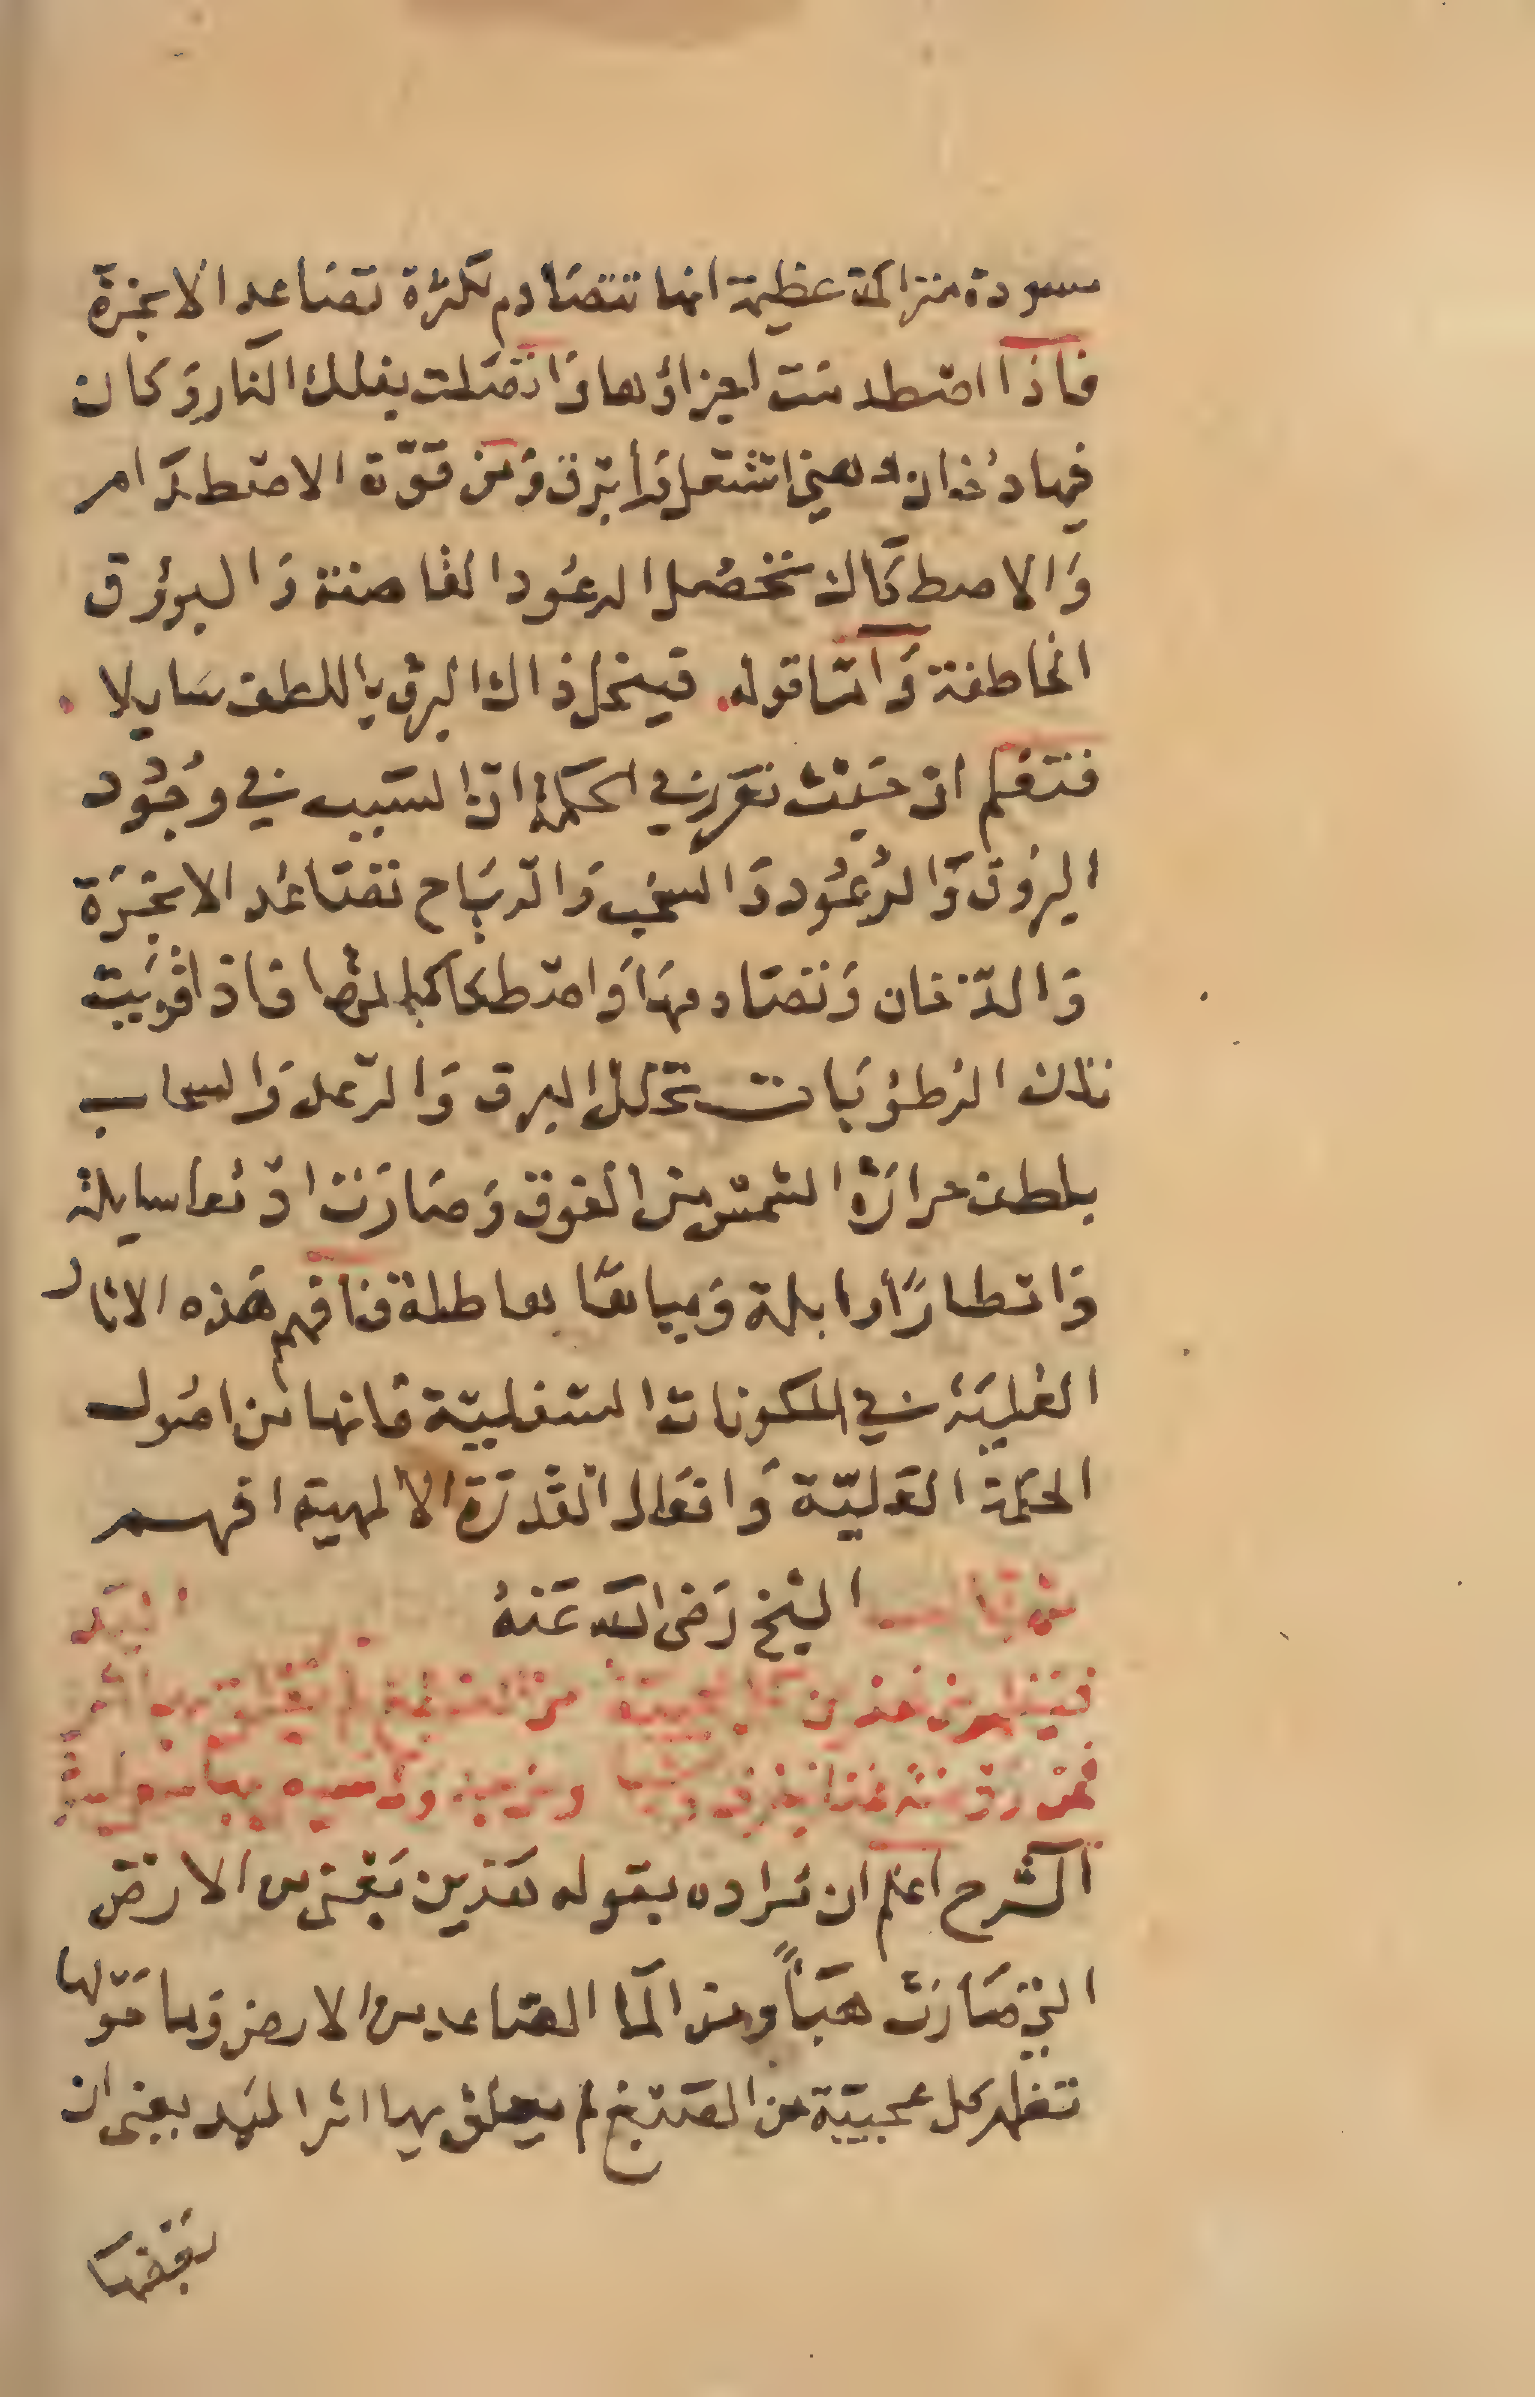 مسودة متراكمة عظيمة انها تتصادم لكثرة تصَاعد الابخرة
فاذا اصطدمت اجزاؤها وَاتصَلت بفلك النار وَكان
فيها دُخان دهني اشتعل وَابرق وَمن قوّة الاصطدَام
وَالاصطكاك تحصُل الرعُود القاصفة وَالبروُق
الخاطفة وَامّا قوله فينحل ذاك البرق باللطف سَايلا
فتفهم ان حَيث تقرر في الحكمة انّ السَبب في وجُود
البرُوق وَالرُعُود وَالسحُب وَالريَاح تصَاعُد الابخرَة
وَالدّخان وَتصَادمهَا وَاصطكاكها فاذا قويَت
تلك الرُطوُبَات تحلل البرق وَالرّعد وَالسحاب
بلطف حرارَة الشمس من الفوق وَصَارَت ادمُعا سايلة
وَامطارًا وابلة وَمياهًا هاطلة فافهم هَذه الاثار
العُليَة في المكونات السّفليّة فانها من اصُول
الحكمَة العَليّة وَافعَال القُدرَة الالهية افهم
ثم قال الشيخ رَضى الله عَنهُ
فيَظهر من هَذين كل عجيبَة
الشرح اعلم ان مُراده بقوله هَذين يَعْني من الارض
التي صَارَت هَبَاً ومن المَا الصَاعد من الارض وَما حَوّلها
تظهر كل عجيبَة من الصَنع لم يعلق بها اثر اليَد يعني ان
بَعْضهَا